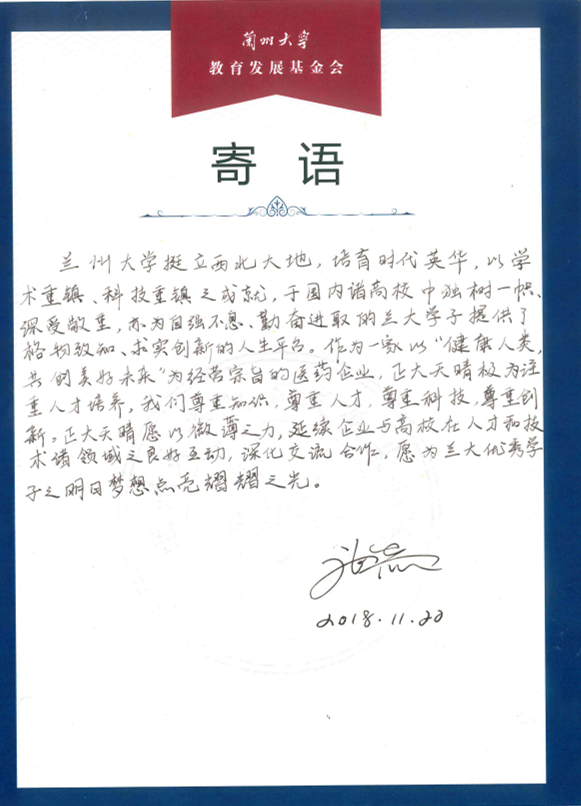 兰州大学
教育发展基金会
寄 语
兰州大学挺立西北大地，培育时代英华，以学
术重镇、科技重镇之成就，于国内诸高校中独树一帜、
深受敬重，亦为自强不息、勤奋进取的兰大学子提供了
格物致知、求实创新的人生平台。作为一家以“健康人类，
共创美好未来”为经营宗旨的医药企业，正大天晴极为注
重人才培养，我们尊重知识，尊重人才，尊重科技，尊重创
新。正大天晴愿以微薄之力，延续企业与高校在人才和技
术诸领域之良好互动，深化交流合作，愿为兰大优秀学
子之明日梦想点亮熠耀之光。
2018.11.20